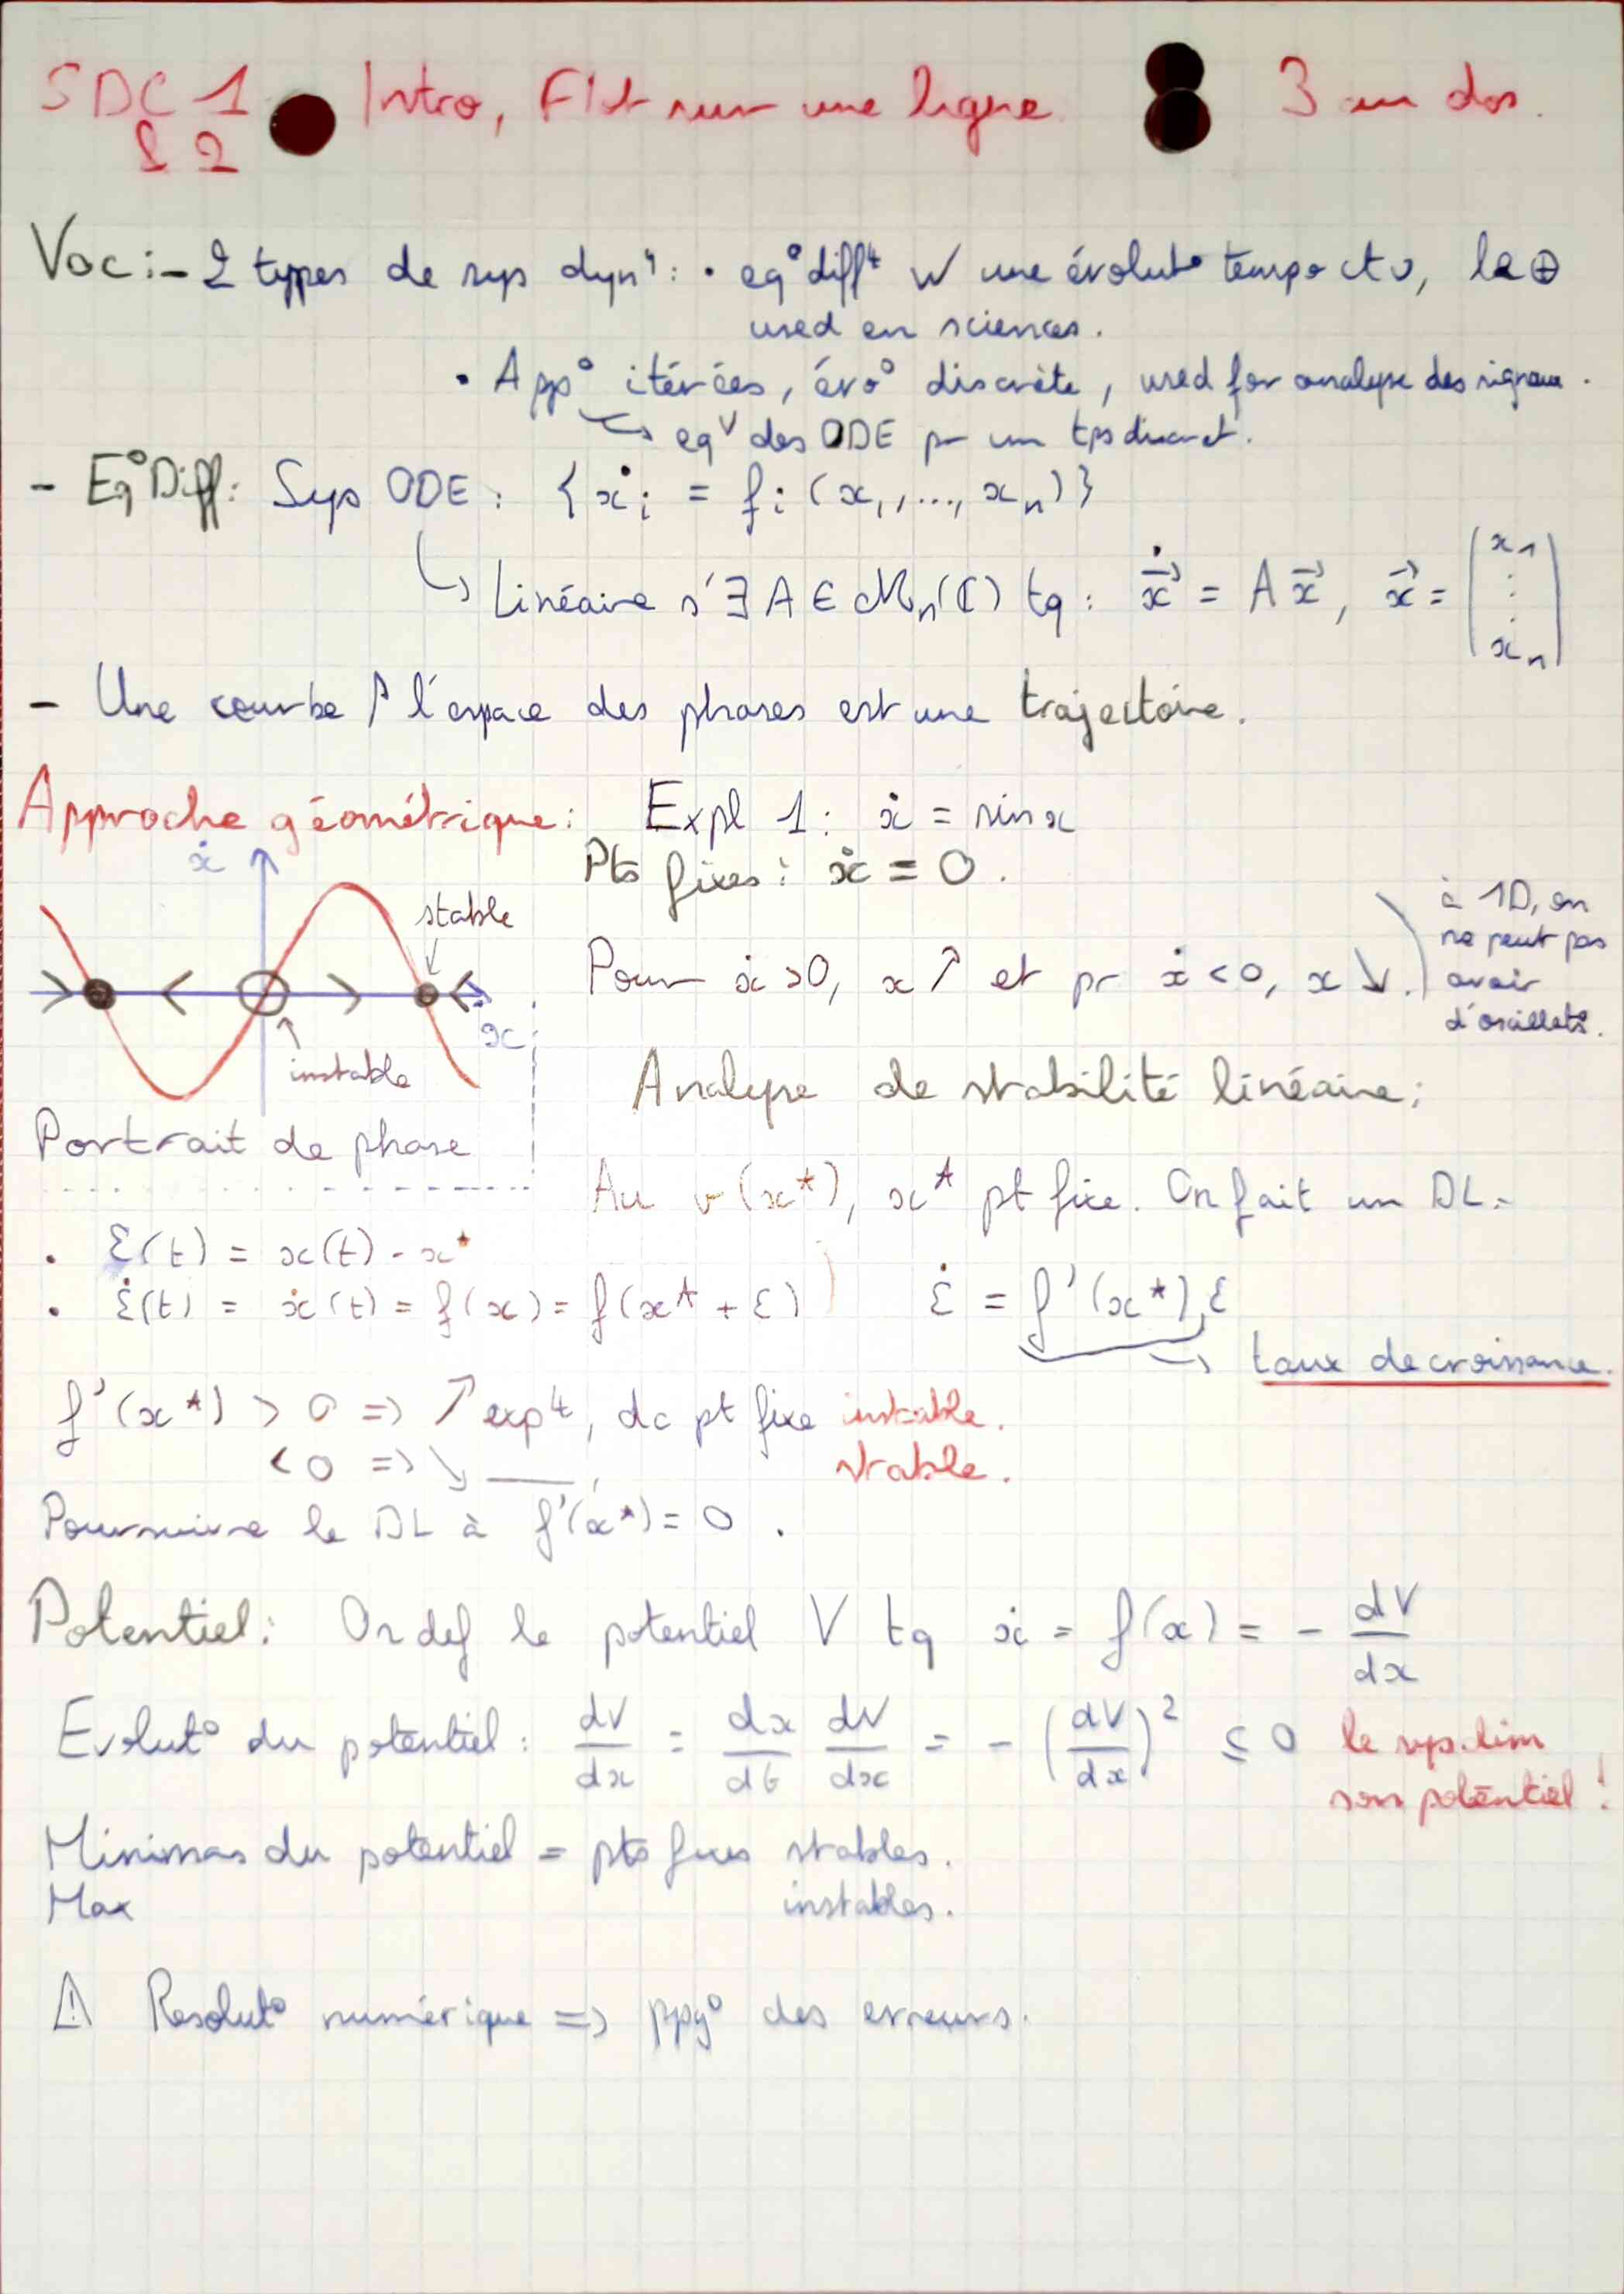 SDC 1 Intro, Flot sur une ligne 3 au dos.
& 2
Voc : - 2 types de sys dynq : • eq° difft w une évolut° tempo ctu, le ⊕
used en sciences.
• App° itérées, évo° discrète, used for analyse des signaux.
↳ eqv des ODE pr un tps discret.
- Eq° Diff : Sys ODE : {ẋi = fi (x1, ..., xn)}
↳ Linéaire s'∃ A ∈ Mn(ℂ) tq : ẋ⃗ = A x⃗, x⃗ = (x1 ⋮ xn)
- Une courbe l'espace des phases est une trajectoire.
Approche géométrique : Expl 1 : ẋ = sin x
Pts fixes : ẋ = 0.
ẋ
stable
x
instable
Portrait de phase
Pour ẋ > 0, x ↗ et pr ẋ < 0, x ↘.
à 1D, on
ne peut pas
avoir
d'oscillat°.
Analyse de stabilité linéaire :
Au v(x*), x* pt fixe. On fait un DL.
• ε(t) = x(t) - x*
• ε̇(t) = ẋ(t) = f(x) = f(x* + ε) ε̇ = f'(x*) ε
→ taux de croissance.
f'(x*) > 0 => ↗ expt, dc pt fixe instable.
< 0 => ↘ —— , stable.
Poursuivre le DL à f'(x*) = 0 .
Potentiel : On def le potentiel V tq ẋ = f(x) = - dV/dx
Evolut° du potentiel : dV/dx = dx/dt dV/dx = - (dV/dx)² ≤ 0 le sys. lim
son potentiel !
Minimas du potentiel = pts fixes stables.
Max instables.
⚠ Resolut° numérique => ppg° des erreurs.